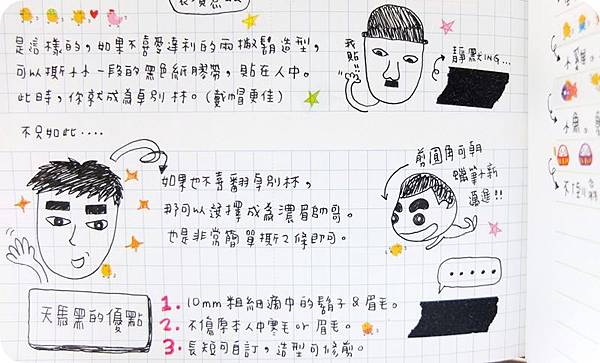 是這樣的，如果不喜愛達利的兩撇鬍造型，
可以撕ㄊㄊ一段的黑色紙膠帶，貼在人中。
此時，你就成為卓別林。(戴帽更佳)
我貼"(3)!!
靜默ING...
不只如此....
剪圓角可朝
蠟筆小新
邁進!!
如果也不喜翻卓別林，
那可以選擇成為濃眉帥哥。
也是非常簡單撕2條即可。
......
天馬黑的優點
1. 10mm粗細滿中的鬍子&眉毛。
2. 不傷原本人中寒毛or眉毛。
3. 長短可自訂，造型可修剪。